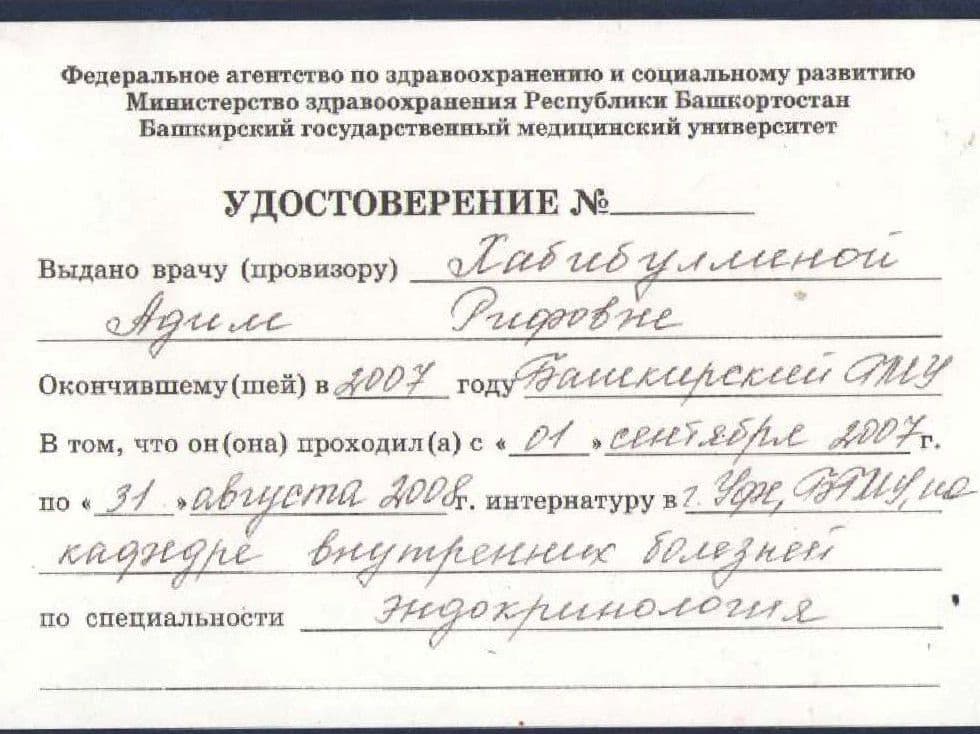 Федеральное агентство по здравоохранению и социальному развитию
Министерство здравоохранения Республики Башкортостан
Башкирский государственный медицинский университет
УДОСТОВЕРЕНИЕ №
Выдано врачу (провизору) Хабибуллиной
Рифовне
Окончившему(шей) в 2007 году Башкирский ГМУ
В том, что он(она) проходил(а) с « 01 » сентября 2007 г.
по « 31 » августа 2008 г. интернатуру в г. Уфе, БГМУ, на
кафедре внутренних болезней
по специальности эндокринология